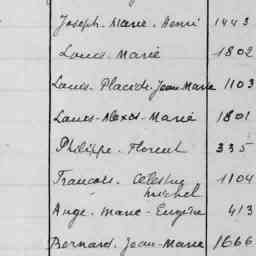 Joseph-Marie-Henri 1443
Louis-Marie 1802
Louis-Placide-Jean Marie 1103
Louis-Alexis-Marie 1801
Philippe-Florent 335
Francois-Célestin 1104
Michel
Ange-Marie-Eugène 413
Bernard-Jean-Marie 1666